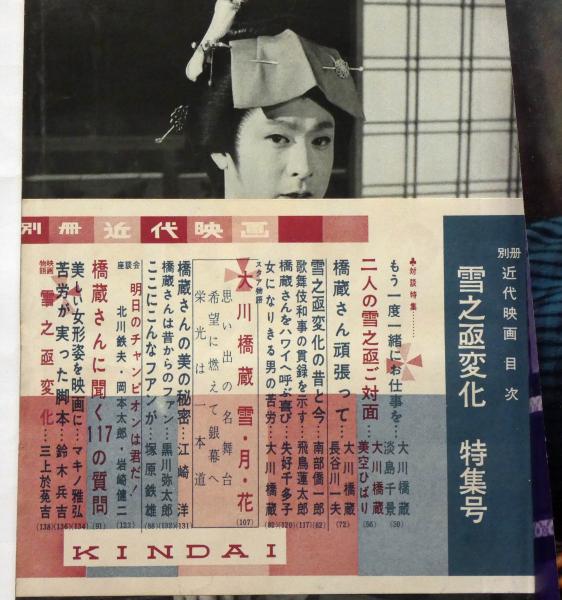 別冊近代映画
別冊 近代映画 目次
雪之丞変化 特集号
♣対談特集……
もう一度一緒にお仕事を…大川橋蔵 淡島千景(50)
二人の雪之丞ご対面…大川橋蔵 美空ひばり(56)
橋蔵さん頑張って…長谷川一夫(72)
雪之丞変化の昔と今…南部僑一郎(62)
歌舞伎和事の貫録を示す…飛鳥蓮太郎(117)
橋蔵さんをハワイへ呼ぶ喜び…失好千多子(120)
女になりきる男の苦労…大川橋蔵(82)
スタア物語
大川橋蔵 雪・月・花(107)
思い出の名舞台
希望に燃えて銀幕へ
栄光は一本道
橋蔵さんの美の秘密…江崎洋(131)
橋蔵さんは昔からのファン…黒川弥太郎(102)
ここにこんなファンが…塚原鉄雄(88)
座談会 明日のチャンピオンは君だ!
北川鉄夫・岡本太郎・岩崎健二(123)
橋蔵さんに聞く117の質問(91)
美しい女形姿を映画に…マキノ雅弘(134)
苦労が実った脚本…鈴木兵吾(136)
映画物語 雪之丞変化…三上於菟吉(138)
KINDAI